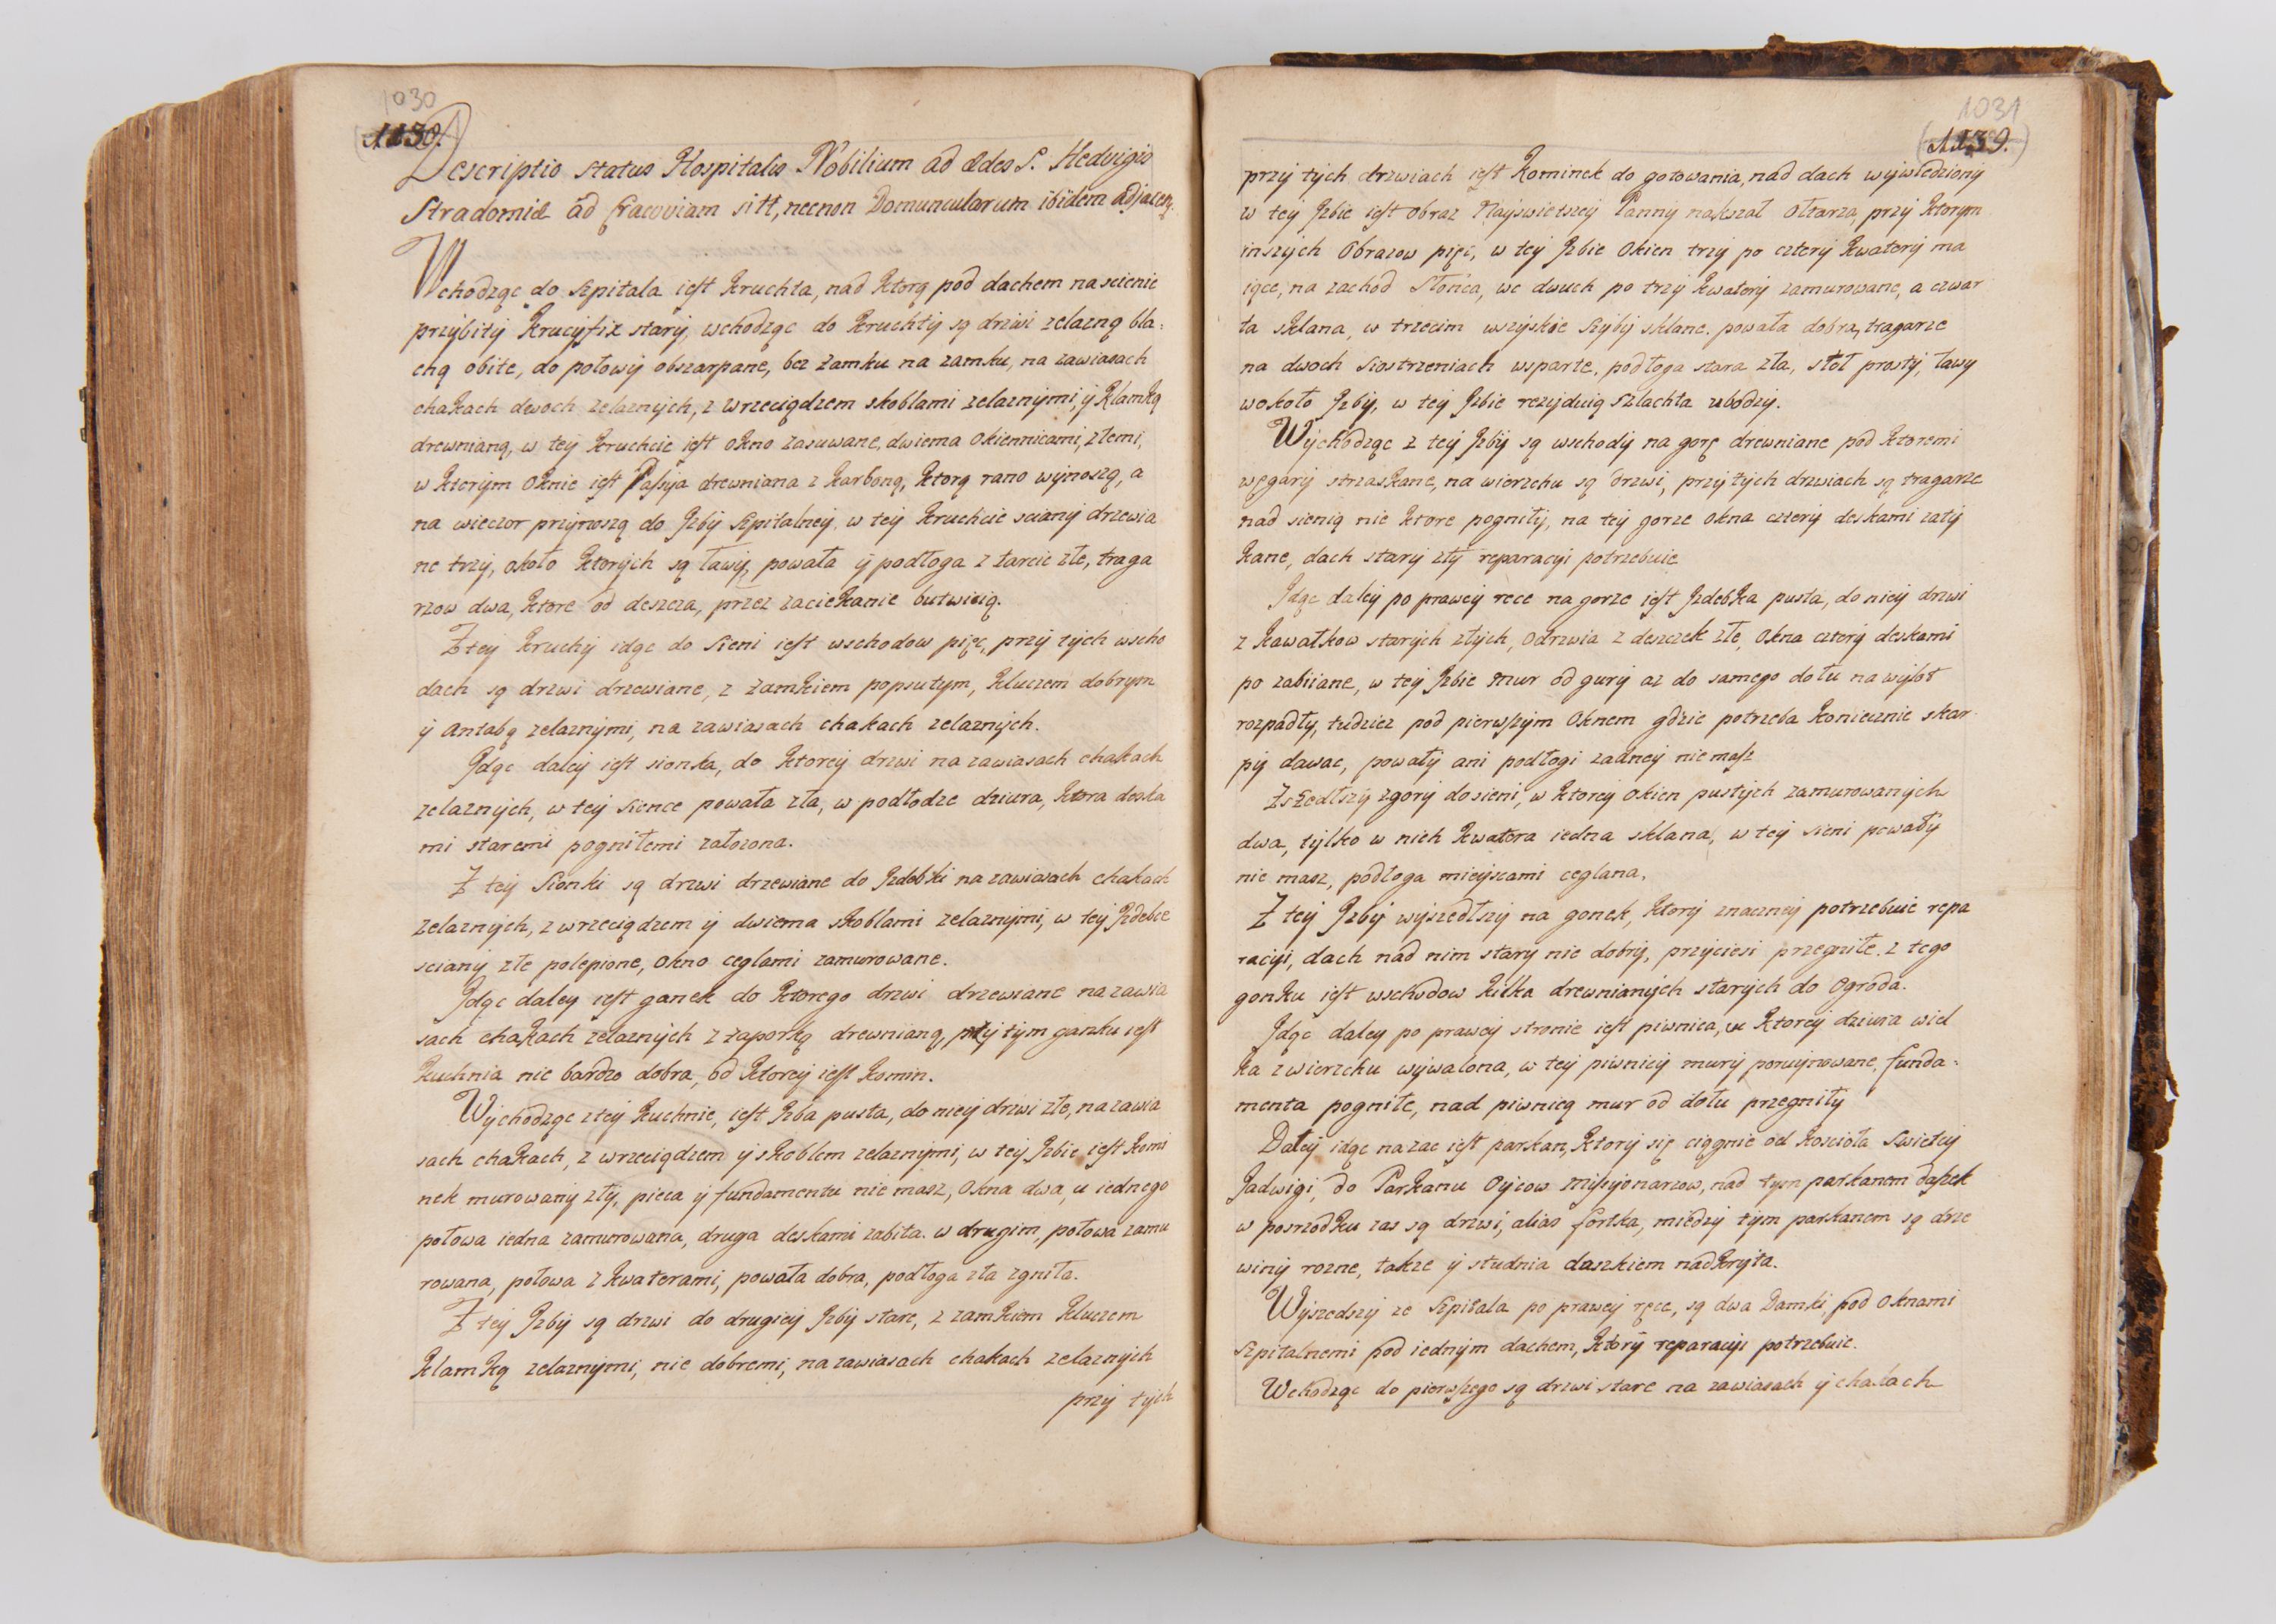 1030
1130.
Descriptio status Hospitalis Nobilium ad ædes S. Hedvigis
Stradomiæ ad Cracoviam siti, necnon Domuncularum ibidem adjacen.
Wchodząc do Szpitala iest Kruchta, nad Ktorą pod dachem na scienie
przybity Krucyfix stary, wchodząc do Kruchty są drzwi zelazną bla:
chą obite, do połowy obszarpane, bez zamku na zamku, na zawiasach
chakach dwoch zelaznych, z wrzeciądzem skoblami zelaznymi, y Klamką
drewnianą, w tey Kruchcie iest okno zasuwane, dwiema okiennicami, złemi,
w Ktorym oknie iest Passya drewniana z Karboną, Ktorą rano wynoszą, a
na wieczor przynoszą do Jzby Szpitalney, w tey Kruchcie sciany drzewia
ne trzy, około Ktorych są ławy, powała y podłoga z tarcic złe, traga
rzow dwa, Ktore od deszcza, przez zaciekanie butwieią.
Z tey Kruchy idąc do Sieni iest wschodow pięć, przy tych wscho
dach są drzwi drzewiane, z zamkiem popsutym, kluczem dobrym
y antabą zelaznymi, na zawiasach chakach zelaznych.
Jdąc daley iest sionka, do Ktorey drzwi na zawiasach chakach
zelaznych, w tey Sience powała zła, w podłodze dziura, Ktora deska
mi staremi pogniłemi założona.
Z tey Sionki są drzwi drzewiane do Jzdebki na zawiasach chakach
zelaznych, z wrzeciądzem y dwiema skoblami zelaznymi, w tey Jzdebce
sciany złe polepione, okno cegłami zamurowane.
Jdąc daley iest ganek do Ktorego drzwi drzewiane na zawia
sach chakach zelaznych z zaporką drewnianą, przy tym ganku iest
Kuchnia nie bardzo dobra, od Ktorey iest Komin.
Wychodząc z tey Kuchnie, iest Jzba pusta, do niey drzwi złe, na zawia
sach chakach, z wrzeciądzem y skoblem zelaznymi, w tey Jzbie iest Komi
nek murowany zły, pieca y fundamentu nie masz, okna dwa, u iednego
połowa iedna zamurowana, druga deskami zabita. w drugim, połowa zamu
rowana, połowa z Kwaterami, powała dobra, podłoga zła zgniła.
Z tey Jzby są drzwi do drugiey Jzby stare, z zamkiem Kluczem
Klamką zelaznymi, nie dobremi, na zawiasach chakach zelaznych
przy tych
1031
1139.
przy tych drzwiach iest Kominek do gotowania, nad dach wywiedziony
w tey Jzbie iest obraz Nayswietszey Panny nakszał Ołtarza, przy Ktorym
inszych Obrazow pięć, w tey Jzbie Okien trzy po cztery Kwatery ma
iące, na zachod Słońca, we dwuch po trzy Kwatery zamurowane, a czwar
ta sklana, w trzecim wszyskie szyby sklane. powała dobra, tragarze
na dwoch siostrzeniach wsparte, podłoga stara zła, stoł prosty, ławy
wokoło Jzby, w tey Jzbie rezyduią szlachta ubodzy.
Wychodząc z tey Jzby są wschody na gorę drewniane pod Ktoremi
węgary strzaskane, na wierzchu są drzwi, przy tych drzwiach są tragarze
nad sienią nie Ktore pogniły, na tey gorze okna cztery deskami zaty
kane, dach stary zły reparacyi potrzebuie
Jdąc daley po prawey rece na gorze iest Jzdebka pusta, do niey drzwi
z Kawałkow starych złych, odrzwia z deszczek złe, okna cztery deskami
po zabiiane, w tey Jzbie mur od gury az do samego dołu na wylot
rozpadły, tudziez pod pierwszym Oknem gdzie potrzeba Koniecznie skar
py dawac, powały ani podłogi zadney nie masz
Zszedłszy zgory do sieni, w Ktorey okien pustych zamurowanych
dwa, tylko w nich Kwatera iedna sklana, w tey sieni powały
nie masz, podłoga mieyscami ceglana.
Z tey Jzby wyszedłszy na gonek, Ktory znaczney potrzebuie repa
racyi, dach nad nim stary nie dobry, przyciesi przegniłe. z tego
gonku iest wschodow Kilka drewnianych starych do Ogroda.
Jdąc daley po prawey stronie iest piwnica, w Ktorey dziura wiel
ka zwierzchu wywalona, w tey piwnicy mury poruynowane, funda:
menta pogniłe, nad piwnicą mur od dołu przegniły
Daley idąc nazac iest parkan, Ktory się ciągnie od Koscioła Swiętey
Jadwigi, do Parkanu Oycow Missyonarzow, nad tym parkanem daszek
w posrzodku zas są drzwi, alias fortka, miedzy tym parkanem są drze
winy rozne, takze y studnia daszkiem nadkryta.
Wyszedszy ze Szpitala po prawey ręce, są dwa Damki, pod oknami
Szpitalnemi pod iednym dachem, Ktory reparacyi potrzebuie.
Wchodząc do pierwszego są drzwi stare na zawiasach y chakach